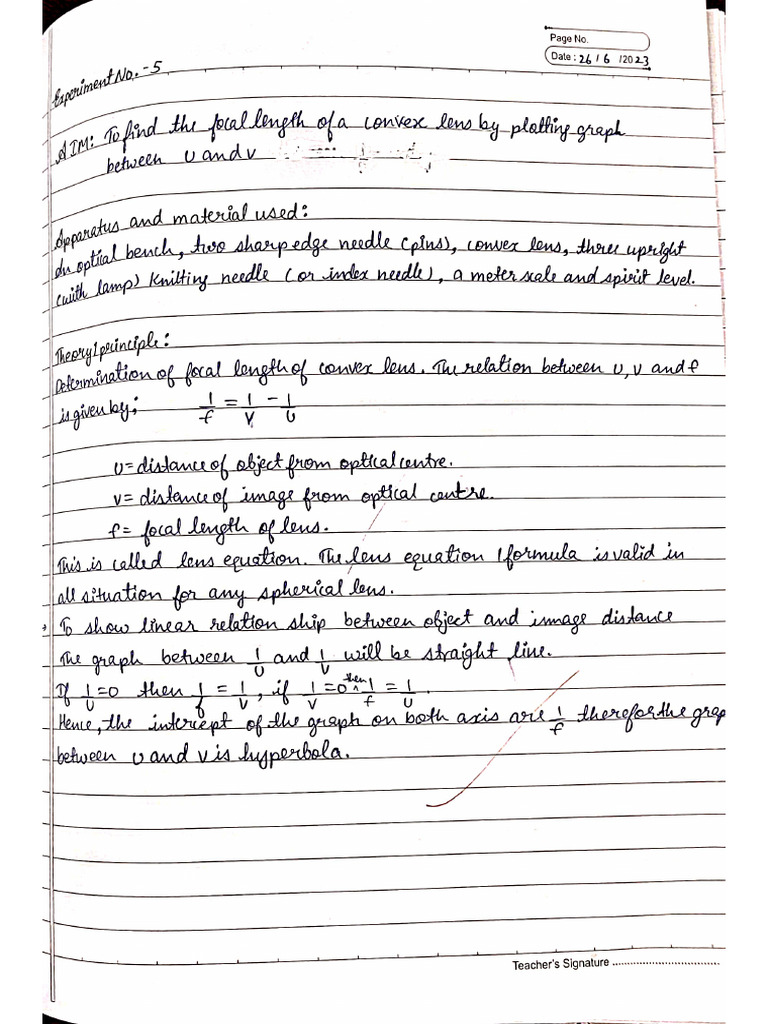 Page No.
Date: 26/6/2023
Experiment No.-5
AIM: To find the focal length of a convex lens by plotting graph
between u and v
Apparatus and material used:
An optial bench, two sharp edge needle (pins), convex lens, three upright
(with lamp) Knitting needle (or index needle), a meter scale and spirit level.
Theory/principle:
Determination of focal length of convex lens. The relation between u, v and f
is given by: 1/f = 1/v - 1/u
u = distance of object from optical centre.
v = distance of image from optical centre.
f = focal length of lens.
This is called lens equation. The lens equation/formula is valid in
all situation for any spherical lens.
To show linear relation ship between object and image distance
The graph between 1/u and 1/v will be straight line.
If 1/u = 0 then 1/f = 1/v, if 1/v = 0 then 1/f = 1/u.
Hence, the intercept of the graph on both axis are 1/f therefor the grap
between u and v is hyperbola.
Teacher's Signature